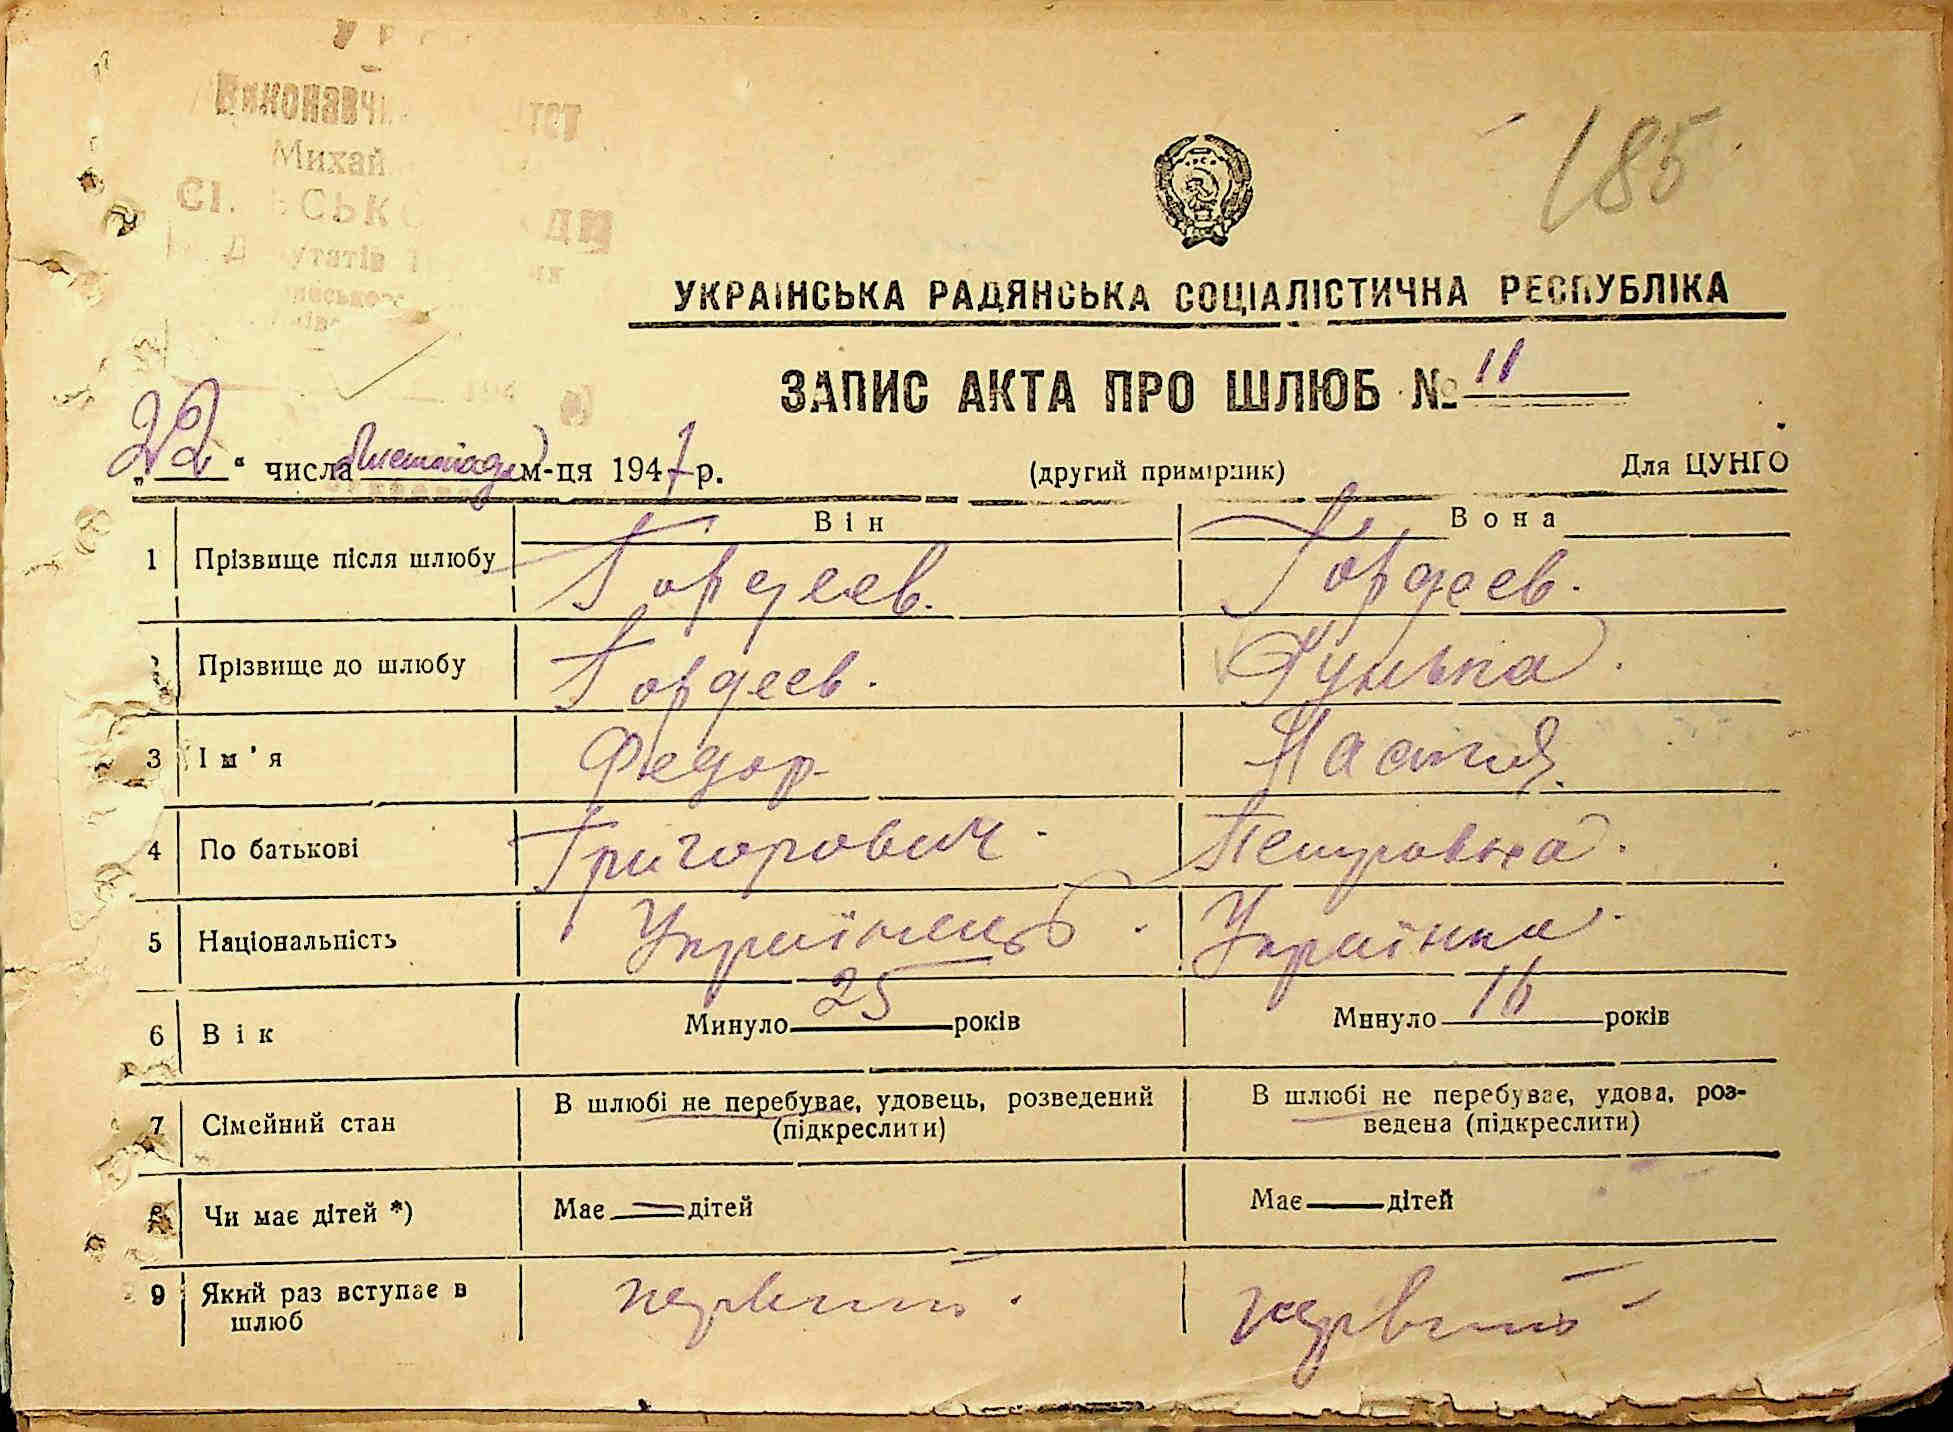 185
Михай
УКРАЇНСЬКА РАДЯНСЬКА СОЦІАЛІСТИЧНА РЕСПУБЛІКА
ЗАПИС АКТА ПРО ШЛЮБ № 11
„22“ числа Листопада м-ця 1947 р. (другий примірник) Для ЦУНГО
Він Вона
1 Прізвище після шлюбу Гордеев. Гордеев.
Прізвище до шлюбу Гордеев. Гунька.
3 Ім'я Федор Настя
4 По батькові Григорович. Петровна.
5 Національність Українець. Українка.
6 Вік Минуло 25 років Минуло 16 років
7 Сімейний стан В шлюбі не перебуває, удовець, розведений (підкреслити) В шлюбі не перебуває, удова, роз-
ведена (підкреслити)
8 Чи має дітей *) Має — дітей Має — дітей
9 Який раз вступає в шлюб первий. первий